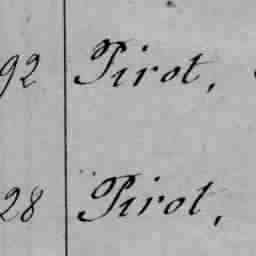 92 Pirot,
28 Pirot,